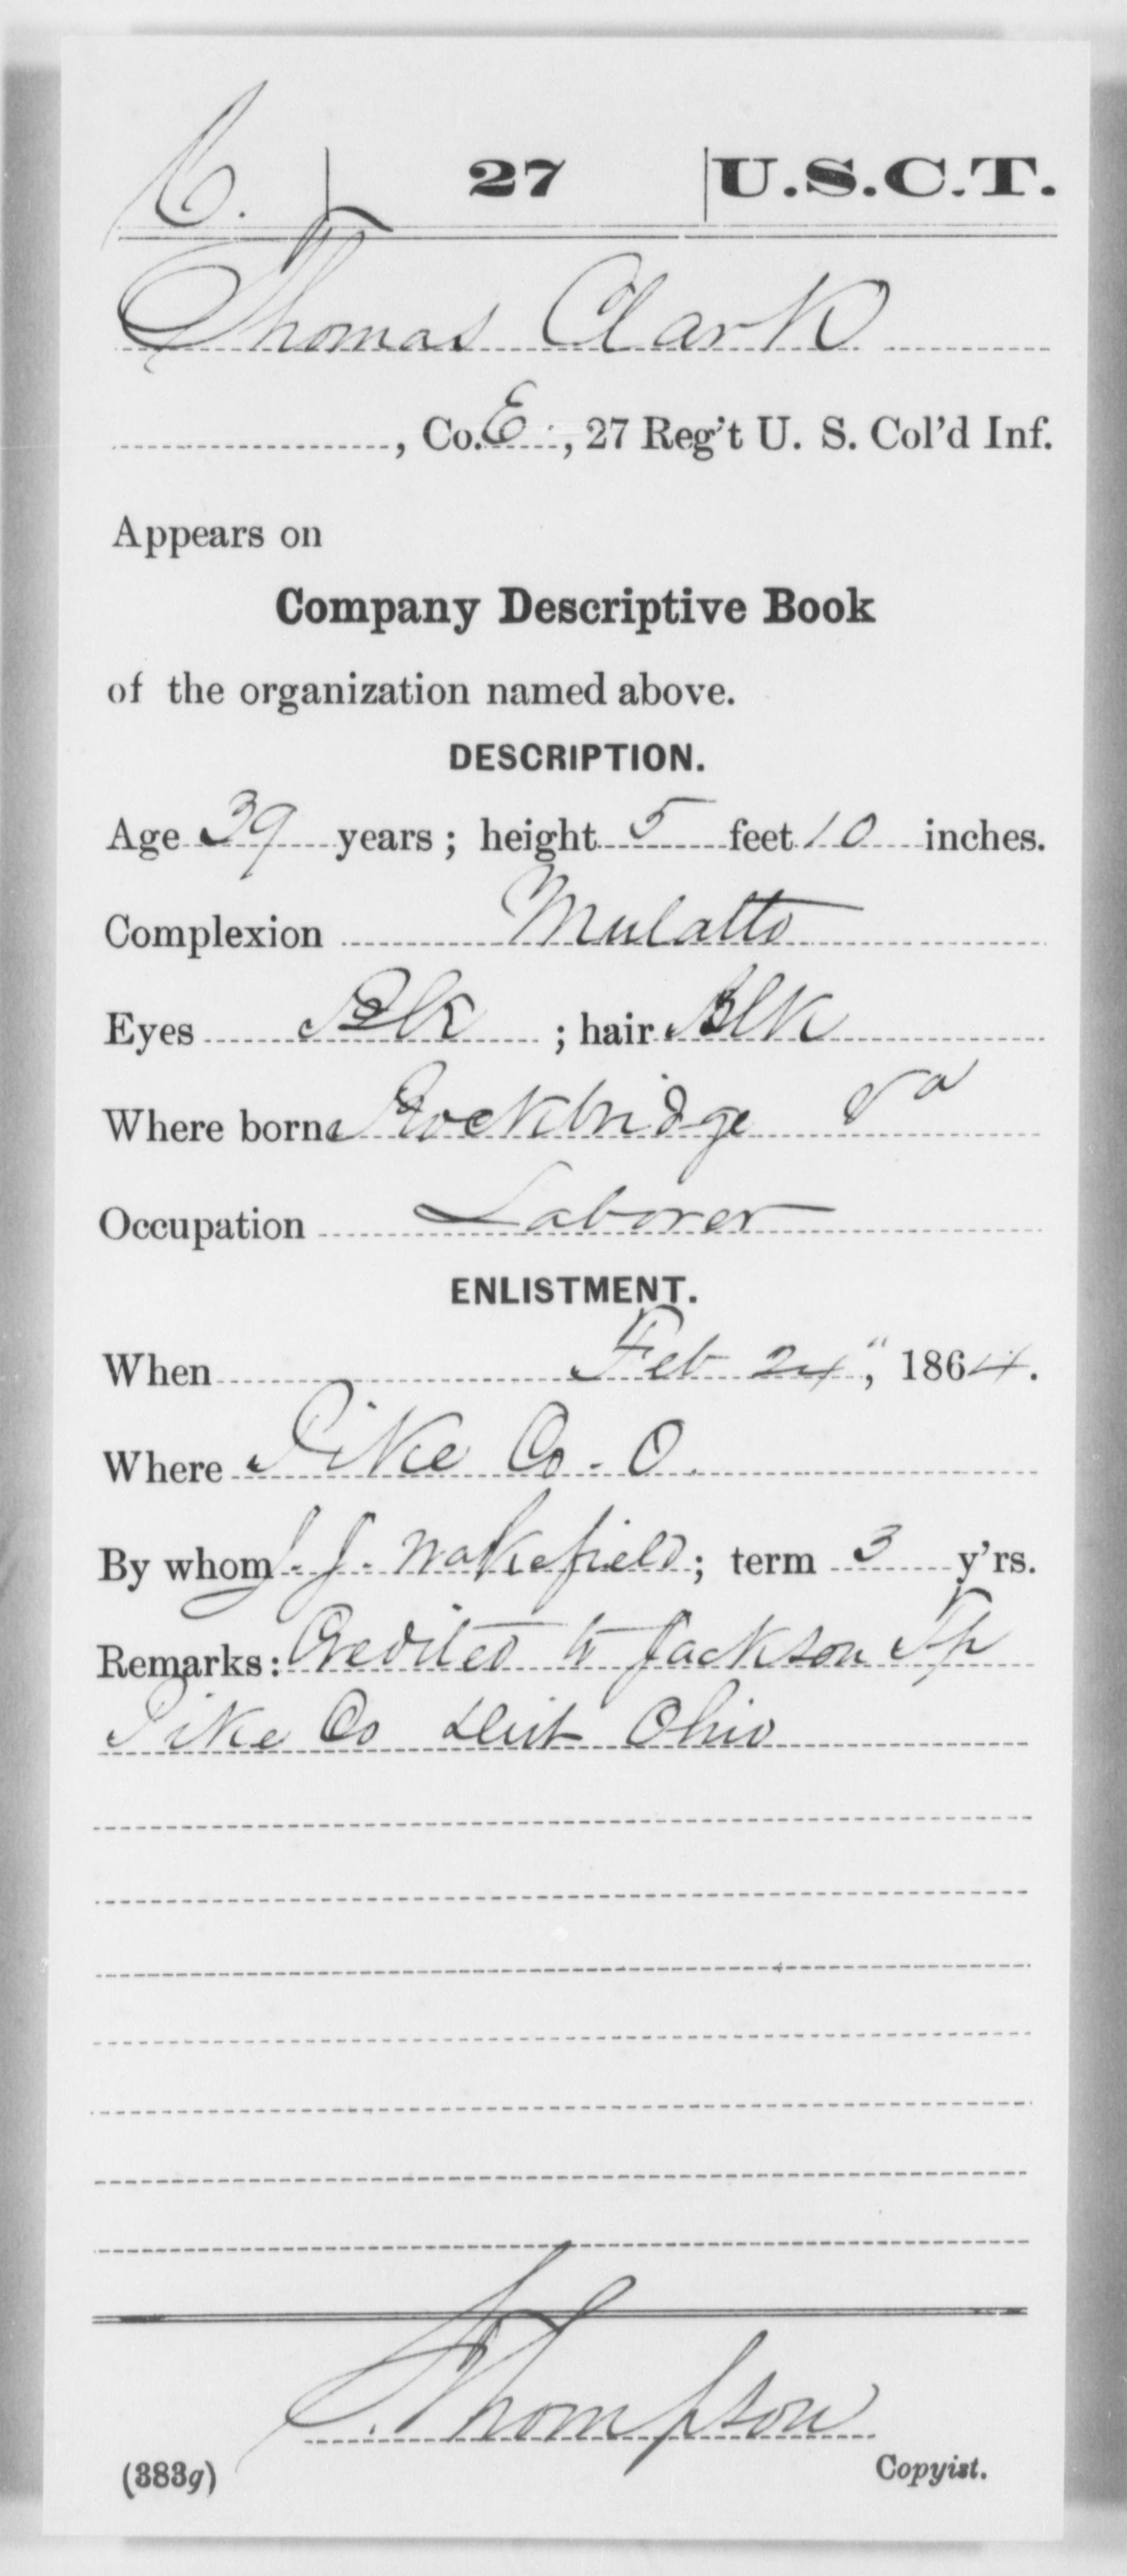 C. | 27 | U.S.C.T.
Thomas Clark
, Co. E, 27 Reg't U. S. Col'd Inf.
Appears on
Company Descriptive Book
of the organization named above.
DESCRIPTION.
Age 39 years; height 5 feet 10 inches.
Complexion Mulatto
Eyes Blk; hair Blk
Where born Rockbridge Va
Occupation Laborer
ENLISTMENT.
When Feb 24", 1864.
Where Pike Co. O.
By whom J. J. Wakefield; term 3 y'rs.
Remarks: Credited to Jackson Tp
Pike Co Ohio
Thompson
(383g) Copyist.